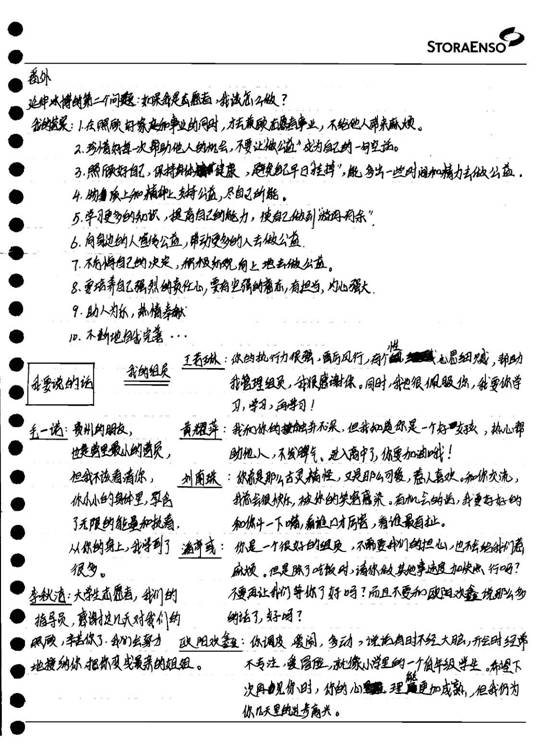 STORAENSO
番外
延伸冰博的第二个问题：如果我是志愿者，我该怎么做？
我的答案：1.在照顾好家庭和事业的同时，才去兼顾志愿事业，不给他人带来麻烦。
2.珍惜好每一次帮助他人的机会，不要让"做公益"成为自己的一句空话。
3.照顾好自己，保持身体健康，避免自己早日"挂掉"，能多出一些时间和精力去做公益。
4.物质上和精神上支持公益，尽自己所能。
5.学习更多的知识，提高自己的能力，使自己做到"游刃有余"
6.向身边的人宣传公益，带动更多的人去做公益
7.不后悔自己的决定，积极乐观向上地去做公益。
8.要培养自己强烈的责任心，要有坚强的意志，有担当，内心强大
9.助人为乐，热情奉献
10.不断地自我完善…
我要说的话
我的组员
王 琳：你的执行力很强，雷厉风行，有个性 心思细腻，帮助
我管理组员，我很感谢你。同时，我也很佩服你，我要你学
习，学习，再学习！
毛一诺：贵州的朋友，
也是营里最小的营员，
但我不该看看你，
你小小的身体里，
了无限的能量和执着
从你的身上，我学到了
很多。
黄耀萍：我们俩的接触并不深，但我知道你是一个好女孩，热心帮
助他人，不发脾气，进入高中了，你要加油哦！
刘雨珠：你有是那么古灵精怪，又是那么可爱，惹人喜欢。和你交流，
我常会很快乐，被你的笑容感染。有机会的话，我要好好的
和你斗一下嘴，看谁口才厉害，看谁最有壮。
：你是一个很好的组员，不需要我们的担心，也不会给我们惹
麻烦。但是除了吃饭时，请你做其他事速度加快点行吗？
不要再让我们等你了好吗？而且不要和欧阳欢鑫说那么多
的话了，好吗？
李 ：大学生志愿者，我们的
指导员，感谢这几天对我们的
照顾，辛苦你了。我们会努力
地接纳你，把你变成最亲的姐姐。
欧阳欢鑫：你调皮 爱闹，多动，说话有时不经大脑，开会时经常
不专注，爱 ，就像小学里的一个低年级学生。希望下
次再见你时，你的心 理能更加成熟，但我们为
你几天里的进步高兴。